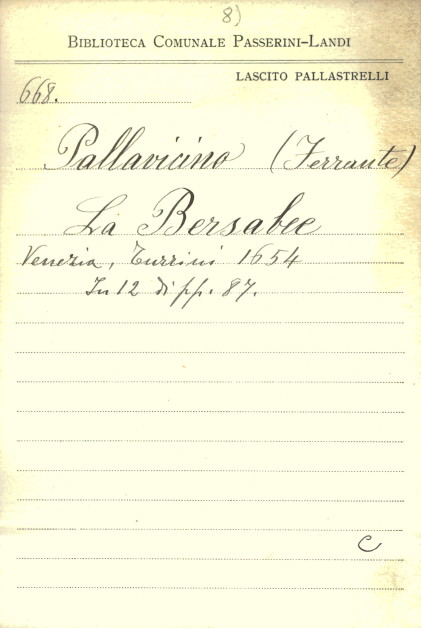 8)
BIBLIOTECA COMUNALE PASSERINI-LANDI
LASCITO PALLASTRELLI
668.
Pallavicino (Ferrante)
La Bersabee
Venezia, Turrini 1654
In 12 di pp. 87.
C